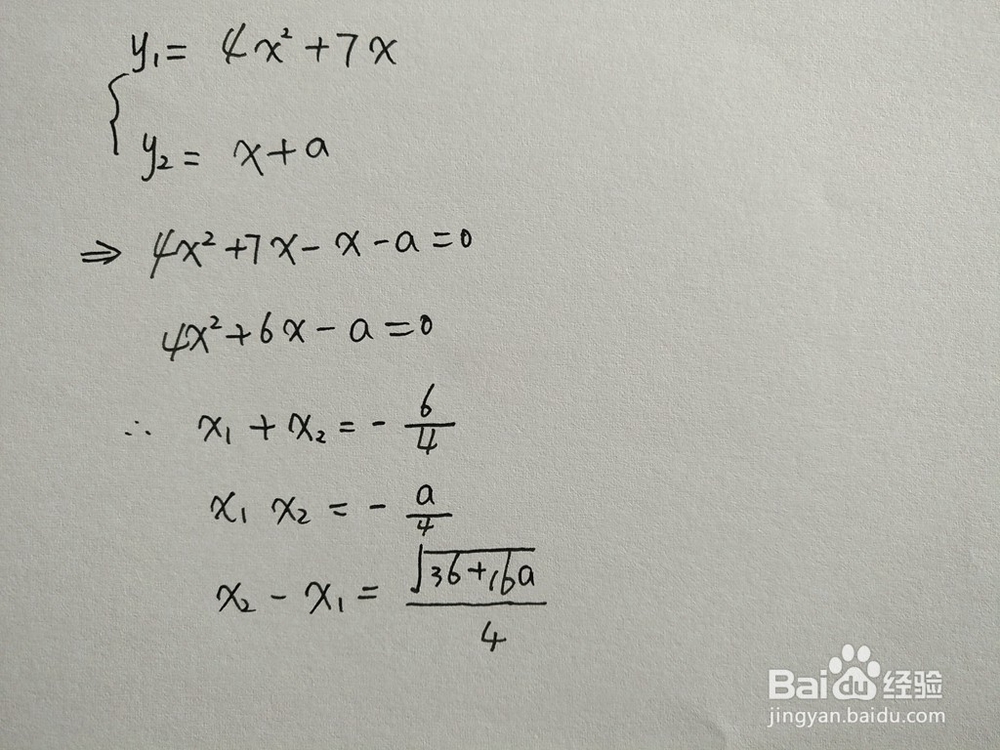 y₁ = 4x² + 7x
y₂ = x + a
⇒ 4x² + 7x - x - a = 0
4x² + 6x - a = 0
∴ x₁ + x₂ = - 6/4
x₁ x₂ = - a/4
x₂ - x₁ = √(36+16a)/4
Baidu经验
jingyan.baidu.com